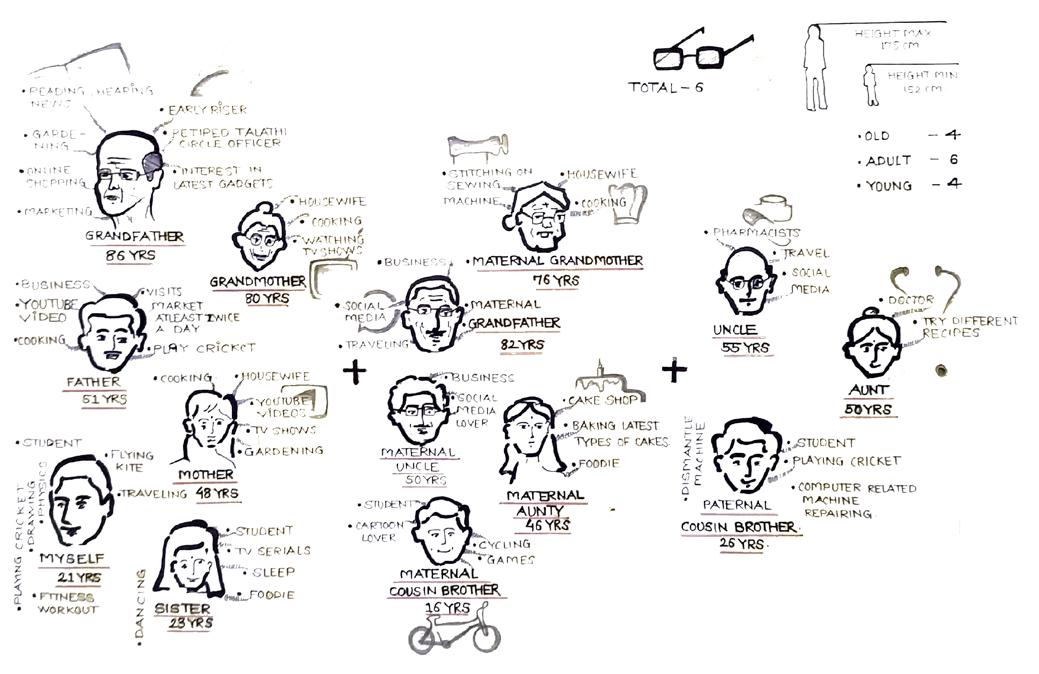 TOTAL - 6
HEIGHT MAX
175 CM
HEIGHT MIN
152 CM
• OLD - 4
• ADULT - 6
• YOUNG - 4
• READING, HEARING
NEWS
• GARDE-
NING
• ONLINE
SHOPPING
• MARKETING
• EARLY RISER
• RETIRED TALATHI
CIRCLE OFFICER
• INTEREST IN
LATEST GADGETS
GRANDFATHER
86 YRS
• HOUSEWIFE
• COOKING
• WATCHING
TV SHOWS
GRANDMOTHER
80 YRS
• STITCHING ON
SEWING
MACHINE
• HOUSEWIFE
• COOKING
MATERNAL GRANDMOTHER
76 YRS
• BUSINESS
• SOCIAL
MEDIA
• TRAVELING
• MATERNAL
• GRANDFATHER
82 YRS
• PHARMACISTS
• TRAVEL
• SOCIAL
MEDIA
UNCLE
55 YRS
• DOCTOR
• TRY DIFFERENT
RECIPES
AUNT
50 YRS
• BUSINESS
• YOUTUBE
VIDEO
• COOKING
• VISITS
MARKET
ATLEAST TWICE
A DAY
• PLAY CRICKET
FATHER
51 YRS
• COOKING
• HOUSEWIFE
• YOUTUBE
VIDEOS
• TV SHOWS
• GARDENING
MOTHER
48 YRS
+
• BUSINESS
• SOCIAL
MEDIA
LOVER
MATERNAL
UNCLE
50 YRS
• CAKE SHOP
• BAKING LATEST
TYPES OF CAKES
• FOODIE
MATERNAL
AUNTY
46 YRS
+
• DISMANTLE
MACHINE
• STUDENT
• PLAYING CRICKET
• COMPUTER RELATED
MACHINE
REPAIRING.
PATERNAL
COUSIN BROTHER.
25 YRS.
• STUDENT
• FLYING
KITE
• TRAVELING
• PLAYING CRICKET
• DRAWING
• PHYSICS
MYSELF
21 YRS
• FITNESS
WORKOUT
• STUDENT
• TV SERIALS
• SLEEP
• FOODIE
• DANCING
SISTER
23 YRS
• STUDENT
• CARTOON
LOVER
• CYCLING
• GAMES
MATERNAL
COUSIN BROTHER
16 YRS